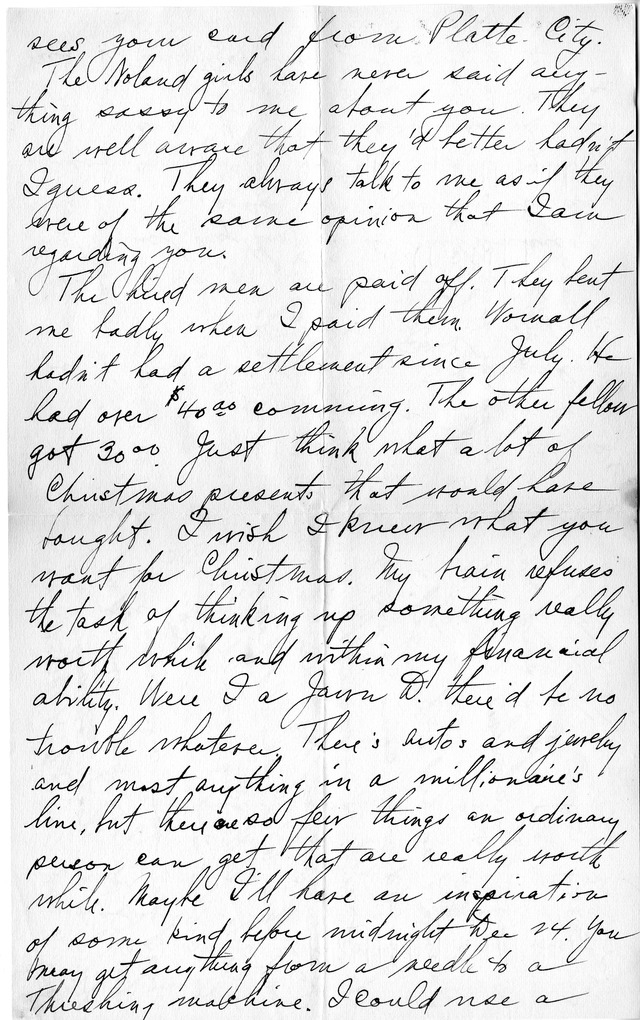 sees your card from Platte City.
The Noland girls have never said any-
thing sassy to me about you. They
are well aware that they'd better hadn't
I guess. They always talk to me as if they
were of the same opinion that I am
regarding you.
The hired men are paid off. They bent
me badly when I paid them. Wornall
hadn't had a settlement since July. He
had over $40.00 comming. The other fellow
got 30.00 Just think what a lot of
Christmas presents that would have
bought. I wish I knew what you
want for Christmas. My brain refuses
the task of thinking up something really
worth while and within my financial
ability. Were I a Jawn D. there'd be no
trouble whatever. There's autos and jewelry
and most anything in a millionaire's
line, but there are so few things an ordinary
person can get that are really worth
while. Maybe I'll have an inspiration
of some kind before midnight Dec 24. You
may get anything from a needle to a
Threshing machine. I could use a